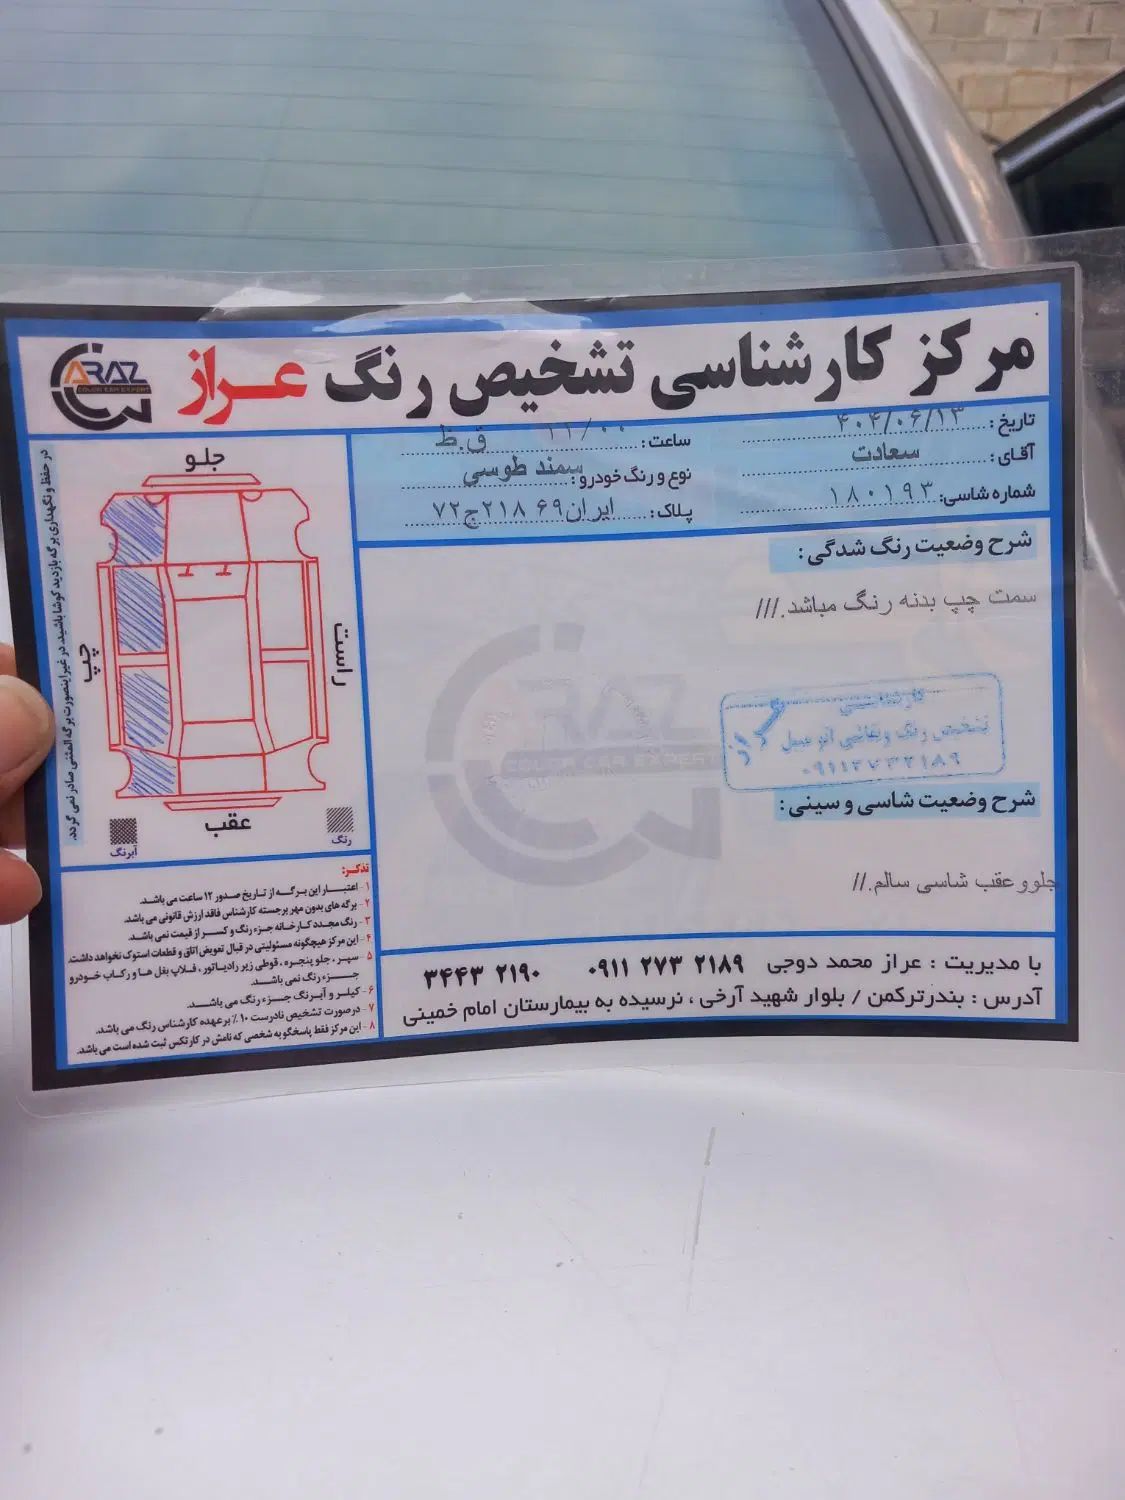 مرکز کارشناسی تشخیص رنگ عراز
ARAZ
COLOR CAR EXPERT
تاریخ : ۴۰۴/۰۶/۱۳
ساعت : ۱۱/۰۰ ق.ظ
آقای : سعادت
نوع و رنگ خودرو : سمند طوسی
شماره شاسی: ۱۸۰۱۹۳
پلاک : ایران۶۹ ۲۱۸ج۷۲
در حفظ و نگهداری برگه بازدید کوشا باشید، در غیر اینصورت برگه المثنی صادر نمی گردد.
جلو
چپ
راست
عقب
رنگ
آبرنگ
شرح وضعیت رنگ شدگی :
سمت چپ بدنه رنگ مباشد.///
ARAZ
COLOR CAR EXPERT
کارشناسی
تشخیص رنگ و نقاشی اتومبیل
۰۹۱۱۲۷۳۲۱۸۹
شرح وضعیت شاسی و سینی :
جلووعقب شاسی سالم.//
تذکر:
۱- اعتبار این برگه از تاریخ صدور ۱۲ ساعت می باشد.
۲- برگه های بدون مهر برجسته کارشناس فاقد ارزش قانونی می باشد.
۳- رنگ مجدد کارخانه جزء رنگ و کسر از قیمت نمی باشد.
۴- این مرکز هیچگونه مسئولیتی در قبال تعویض اتاق و قطعات استوک نخواهد داشت.
۵- سپر، جلو پنجره، قوطی زیر رادیاتور، فلاپ بغل ها و رکاب خودرو
جزء رنگ نمی باشد.
۶- کیلر و آبرنگ جزء رنگ می باشد.
۷- درصورت تشخیص نادرست ۱۰٪ برعهده کارشناس رنگ می باشد.
۸- این مرکز فقط پاسخگو به شخصی که نامش در کارتکس ثبت شده است می باشد.
با مدیریت : عراز محمد دوجی ۰۹۱۱ ۲۷۳ ۲۱۸۹ ۳۴۴۳ ۲۱۹۰
آدرس : بندرترکمن / بلوار شهید آرخی ، نرسیده به بیمارستان امام خمینی